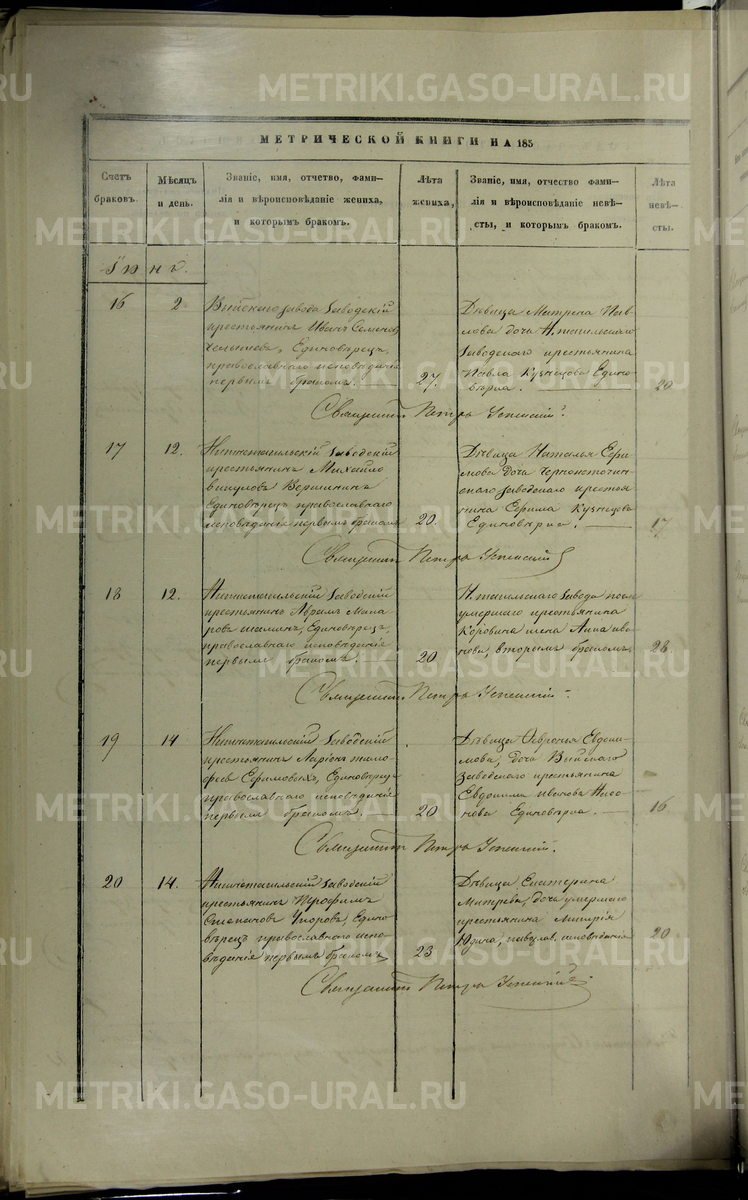 МЕТРИЧЕСКОЙ КНИГИ НА 185
Счетъ
браковъ.
Мѣсяцъ
и день.
Званіе, имя, отчество, фами-
лія и вѣроисповѣданіе жениха,
и которымъ бракомъ.
Лѣта
жениха,
Званіе, имя, отчество фами-
лія и вѣроисповѣданіе невѣ-
сты, и которымъ бракомъ.
Лѣта
невѣ-
сты.
16
2
Выйскаго завода заводскій
крестьянинъ Иванъ Семеновъ
Единовѣрецъ,
православнаго исповѣданія
первымъ бракомъ.
27.
Дѣвица Матрена Пав-
лова дочь Н.тагильскаго
заводскаго крестьянина
Павла Кузнецова Едино-
вѣрка.
20
Священникъ Петръ
17
12.
Нижнетагильскій заводскій
крестьянинъ Михайло
Викуловъ Вершининъ
Единовѣрецъ православнаго
исповѣданія первымъ бракомъ
20.
Дѣвица Наталья Ефи-
мова дочь Черноисточин-
скаго заводскаго крестья-
нина Ефима Кузнецова
Единовѣрка.
17
Священникъ Петръ
18
12.
Нижнетагильскій заводскій
крестьянинъ Абрамъ Мака-
ровъ Единовѣрецъ,
православнаго исповѣданія
первымъ бракомъ.
20
Н.тагильскаго завода после
умершаго крестьянина
жена Анна Ива-
нова, вторымъ бракомъ.
28
Священникъ Петръ
19
14
Нижнетагильскій заводскій
крестьянинъ Ларіонъ Тимо-
феевъ Ефимовыхъ, Единовѣрецъ
православнаго исповѣданія
первымъ бракомъ.
20
Дѣвица Февронья Евдоки-
мова, дочь Выйскаго
заводскаго крестьянина
Евдокима Иванова
Единовѣрка.
16
Священникъ Петръ
20
14.
Нижнетагильскій заводскій
крестьянинъ
Степановъ Едино-
вѣрецъ православнаго испо-
вѣданія первымъ бракомъ
23
Дѣвица Екатерина
дочь умершаго
крестьянина Димитрія
Юдина, исповѣданія
20
Священникъ Петръ
METRIKI.GASO-URAL.RU